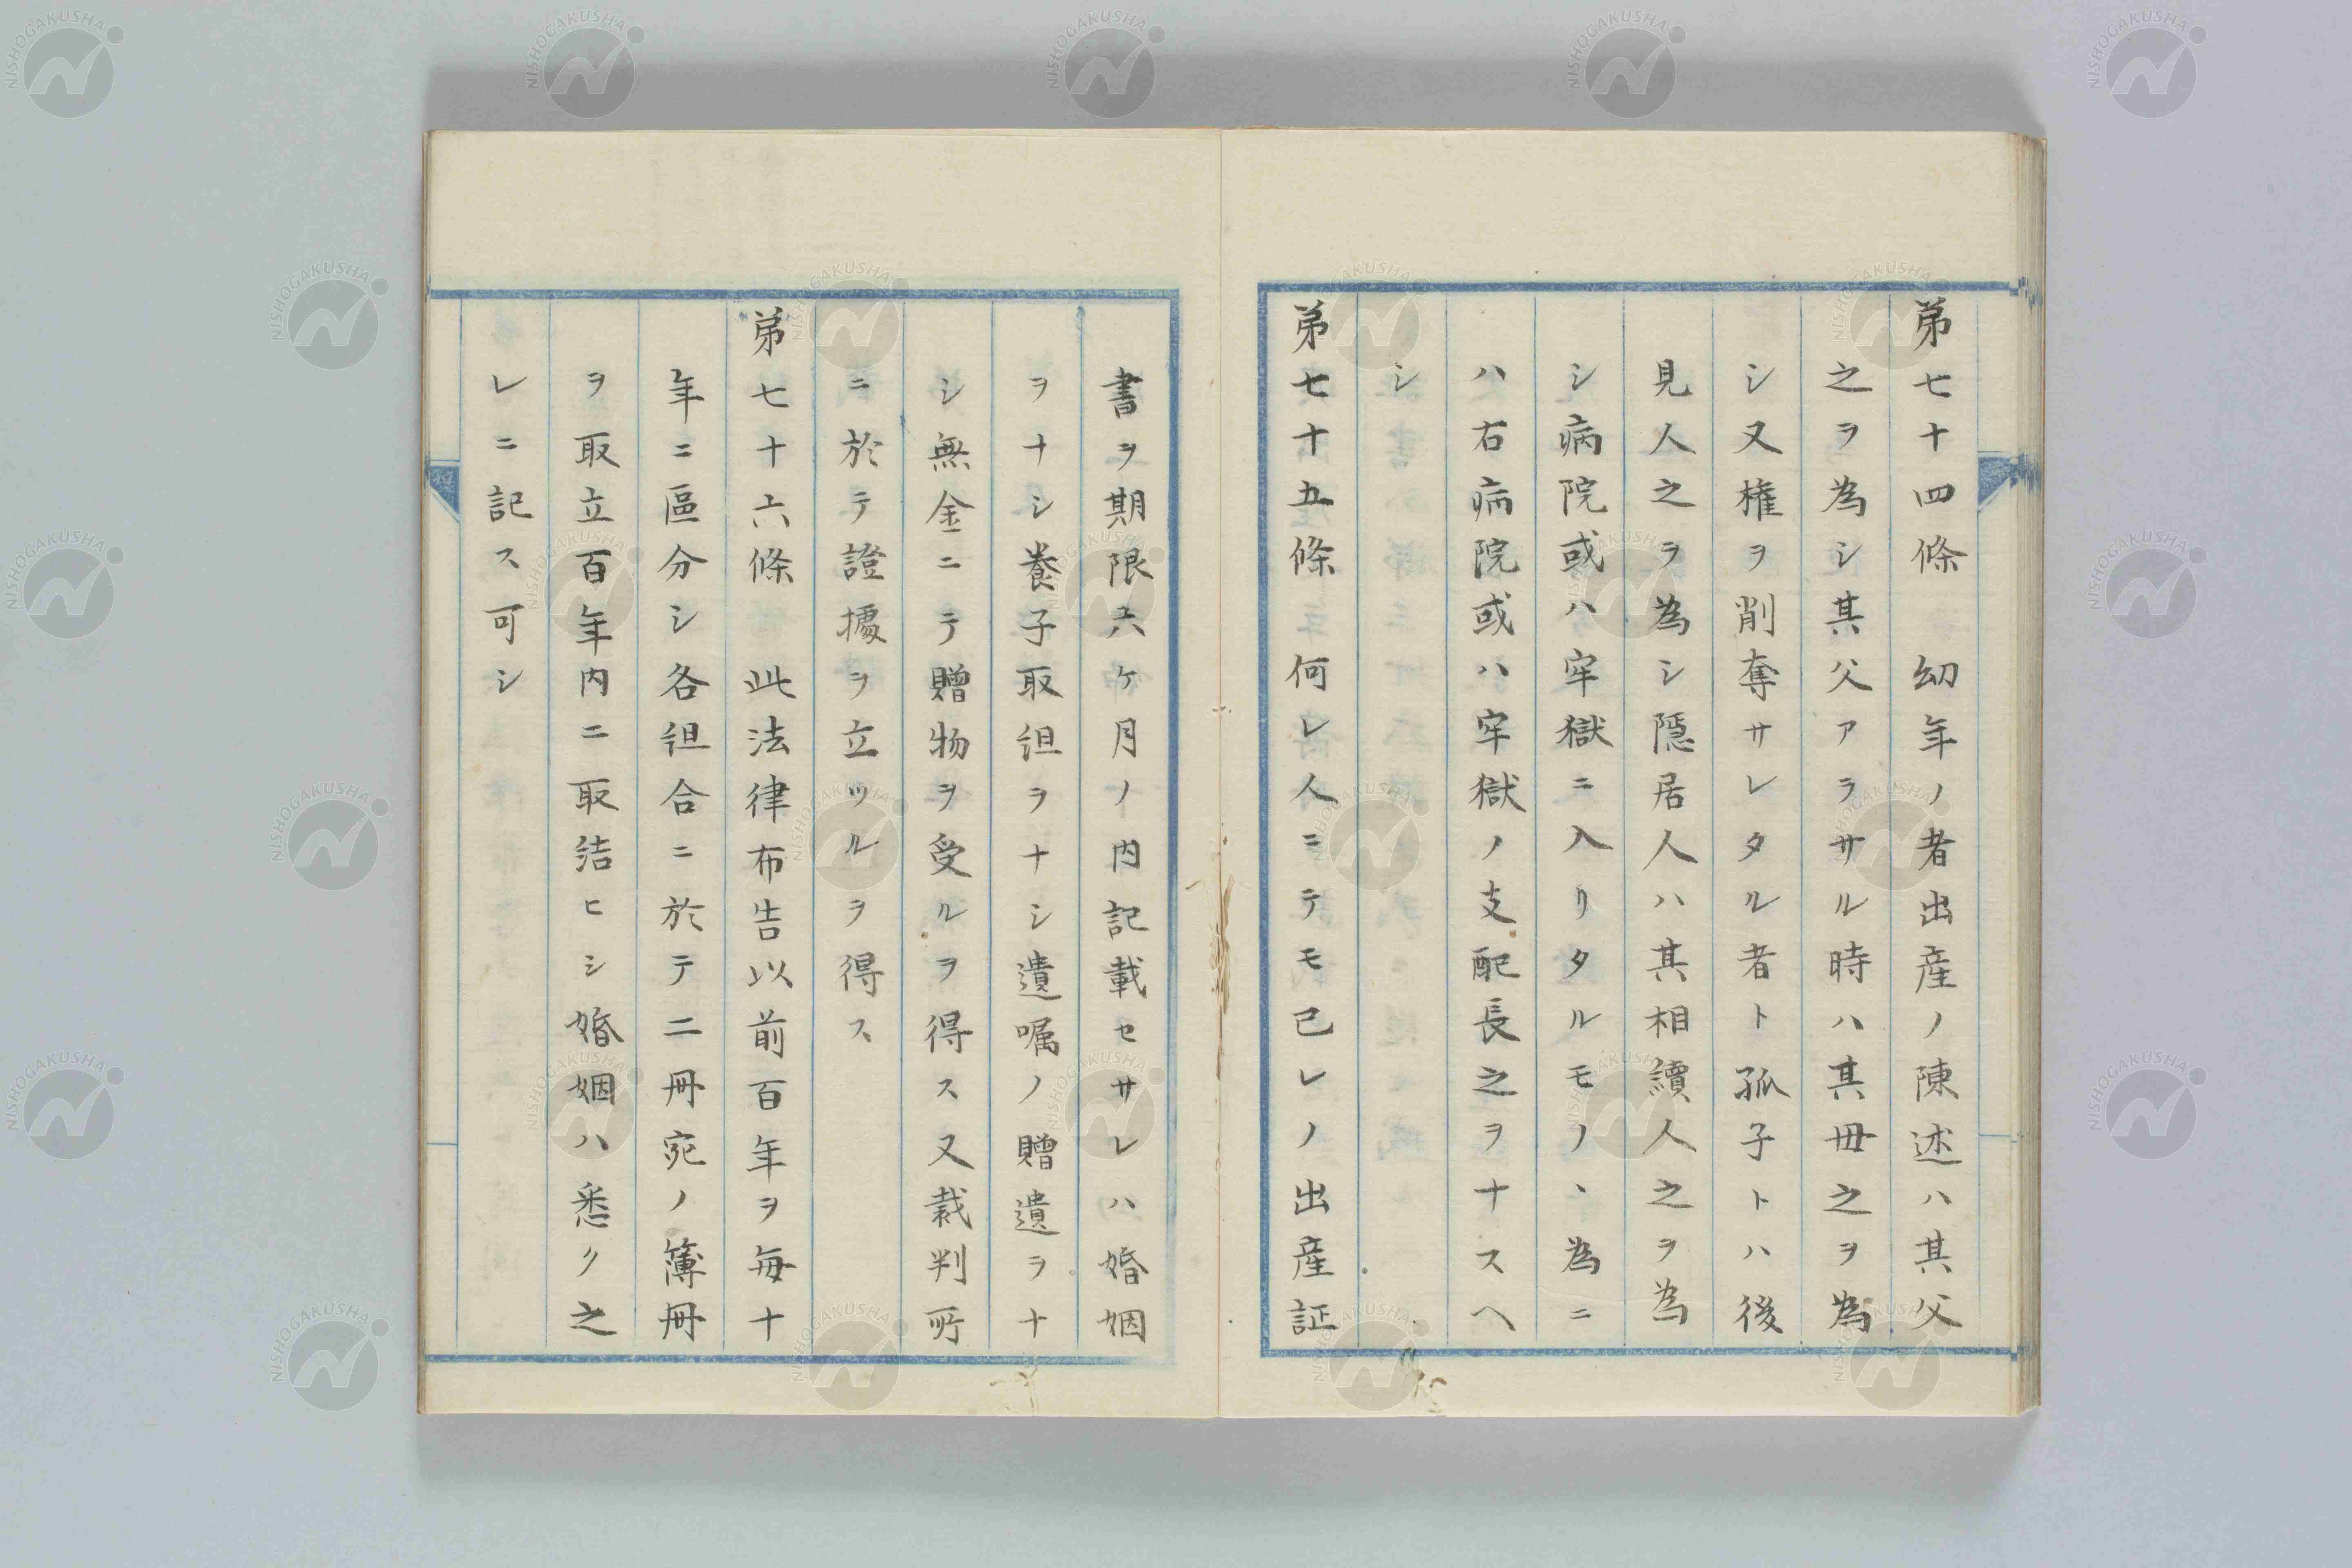 弟七十四條　幼年ノ者出産ノ陳述ハ其父
之ヲ為シ其父アラサル時ハ其毋之ヲ為
シ又権ヲ削奪サレタル者ト孤子トハ後
見人之ヲ為シ隠居人ハ其相續人之ヲ為
シ病院或ハ牢獄ニ入リタルモノヽ為ニ
ハ右病院或ハ牢獄ノ支配長之ヲナスヘ
シ
弟七十五條何レ人ニテモ己レノ出産証
書ヲ期限六ケ月ノ内記載セサレハ婚姻
ヲナシ養子取組ヲナシ遺嘱ノ贈遺ヲナ
シ無金ニテ贈物ヲ受ルヲ得ス又裁判所
ニ於テ證據ヲ立ツルヲ得ス
弟七十六條　此法律布告以前百年ヲ毎十
年ニ區分シ各組合ニ於テ二冊宛ノ簿冊
ヲ取立百年内ニ取結ヒシ婚姻ハ悉ク之
レニ記ス可シ
NISHOGAKUSHA